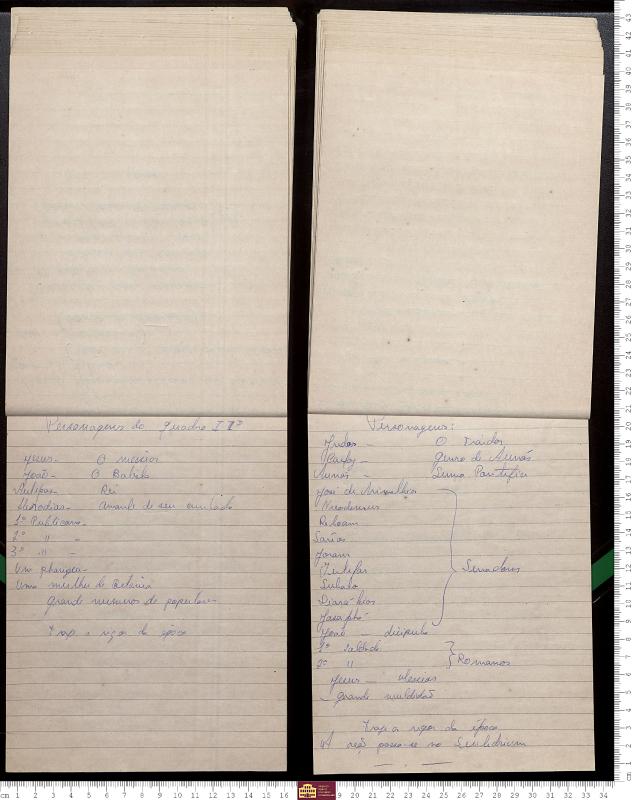 Personagens do quadro II º
Jesus - O messias
João - O Batista
Antipas - Rei
Herodias - amante de seu cunhado
1º Publicano -
2º " -
3º " -
Um phariseu -
Uma mulher de Betania
grande numero de populares
Trap a rigor da época
Personagens:
Judas - O Traidor
Caifaz - genro de Annás
Annás - Sumo Pontifice
José de Arimathea
Nicodemus
Roboam
Joram
Senadores
João - discipulo
1º soldado
2º "
Romanos
Jesus - Messias
- grande multidão
Trap a rigor da época
A ação passa-se no Sinhedrium